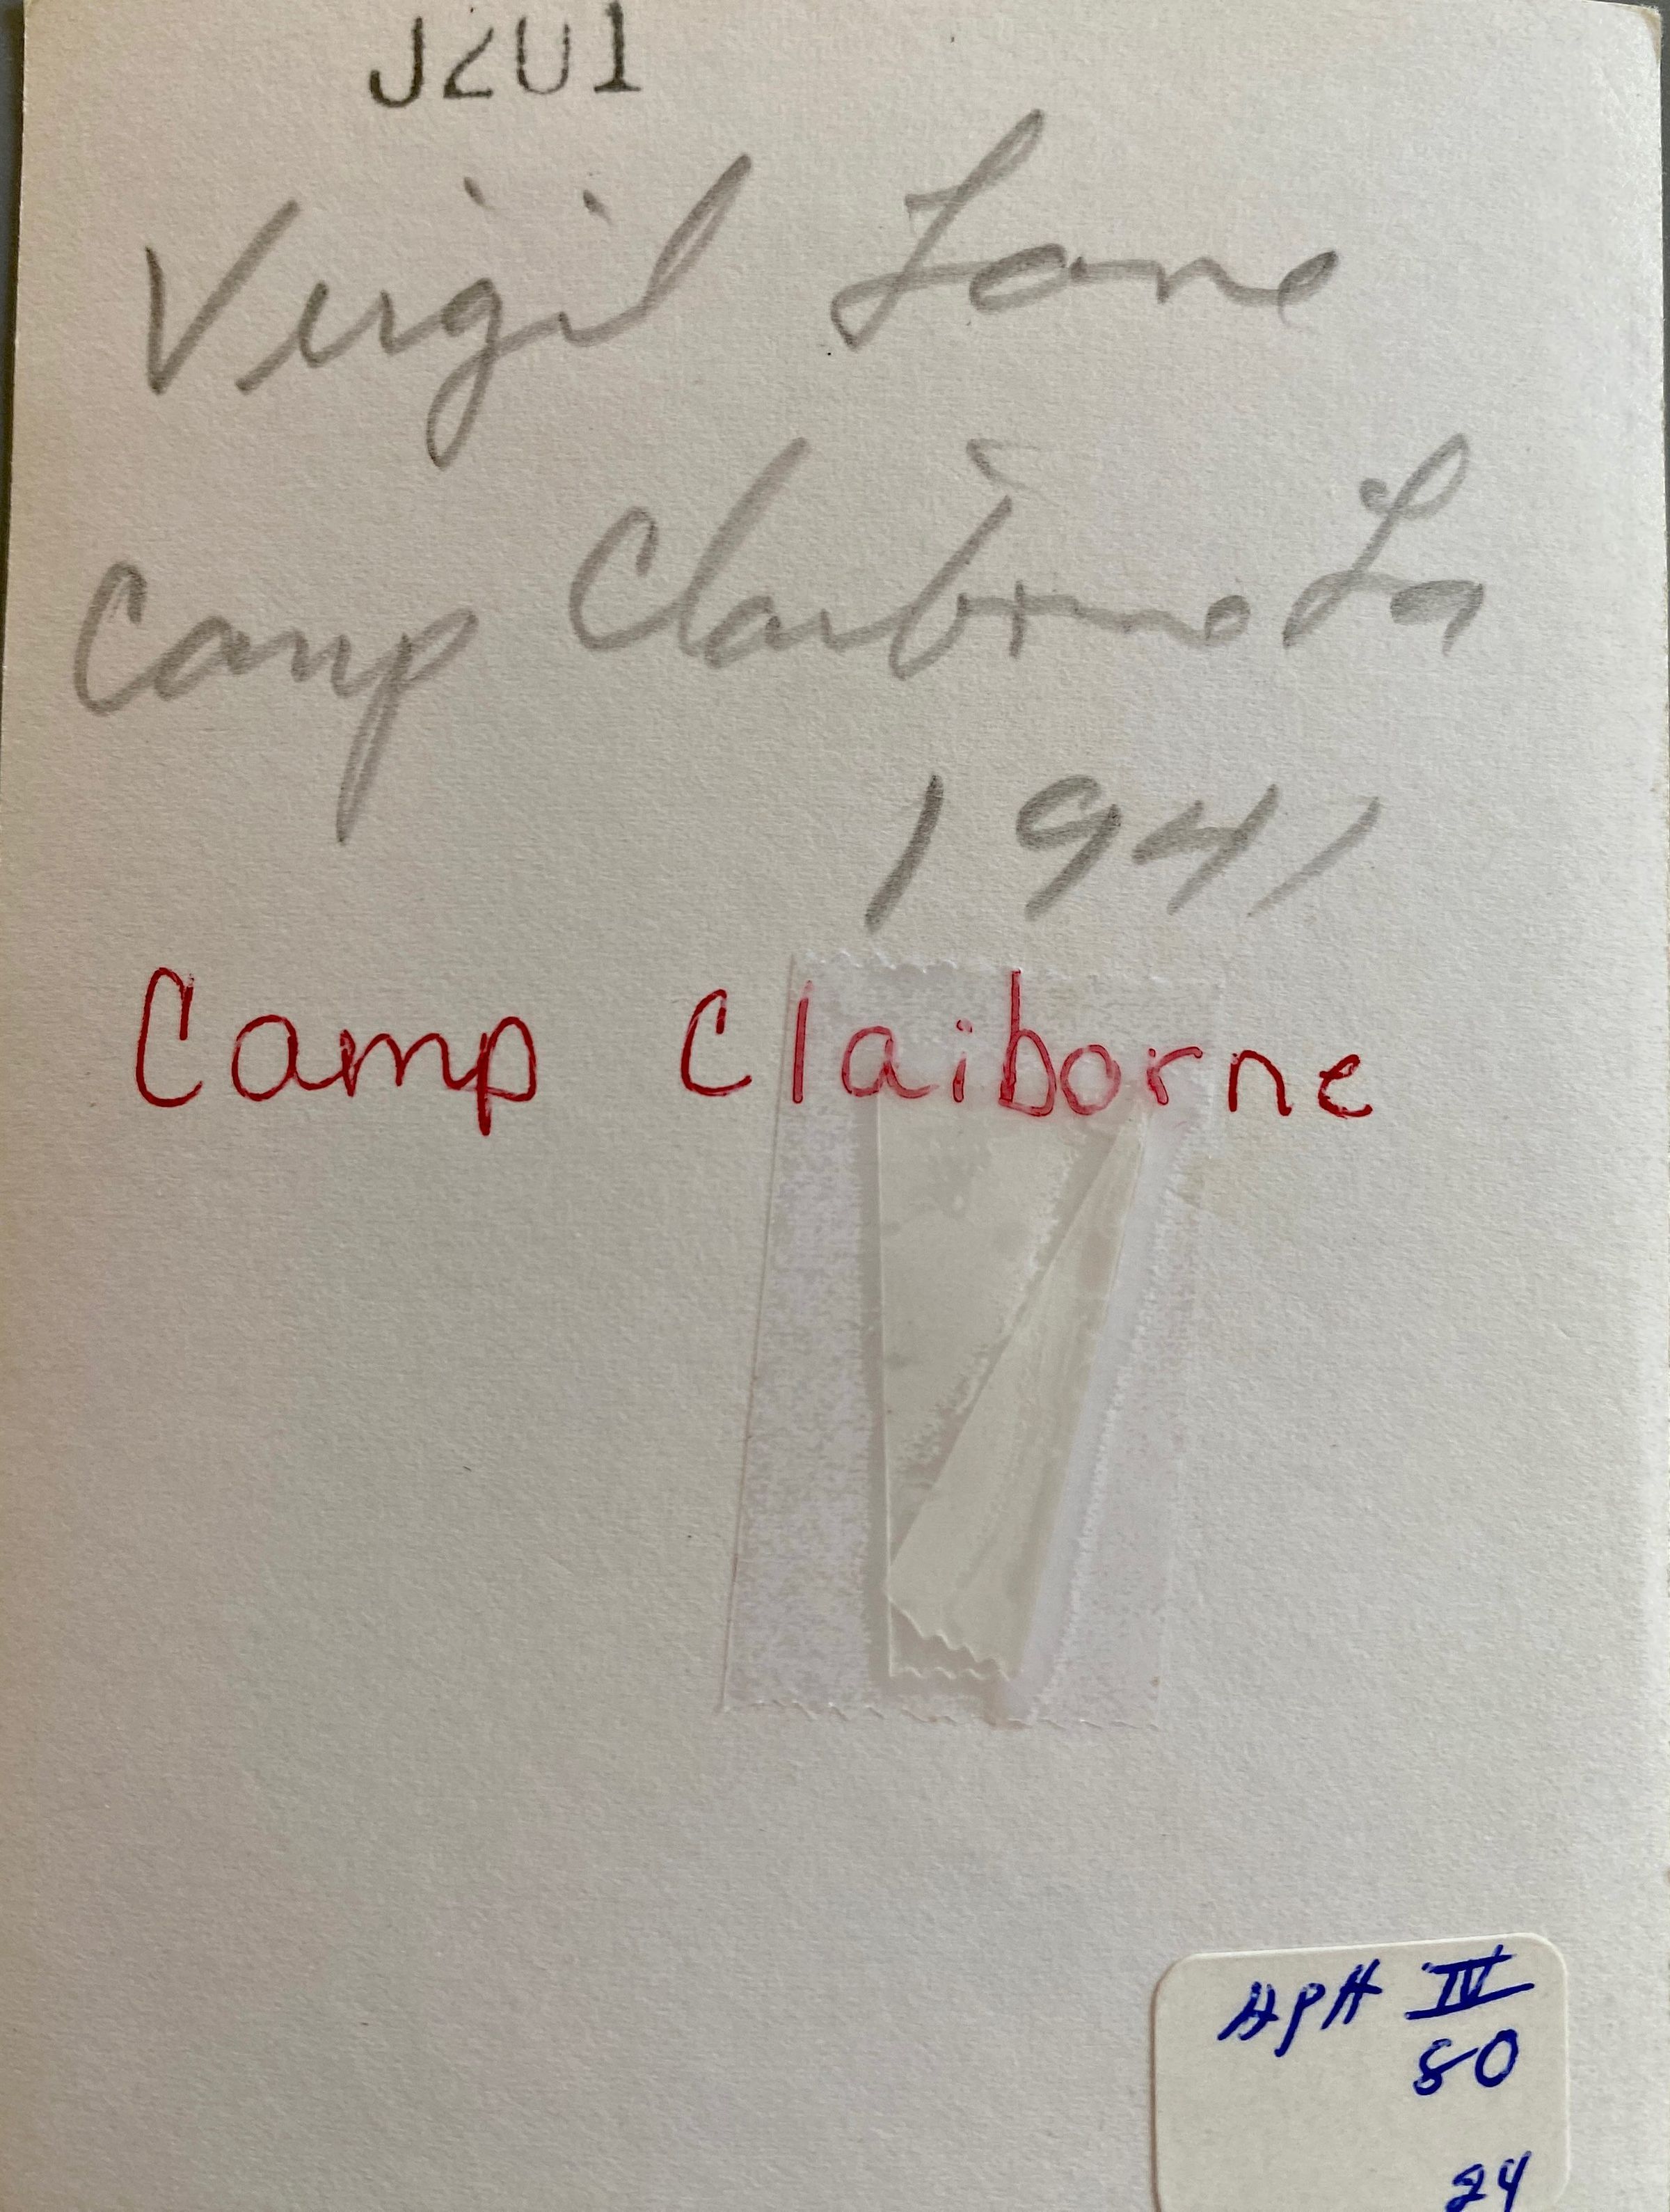 J201
Virgil Lane
Camp Claiborne La
1941
Camp Claiborne
APH IV
80
24